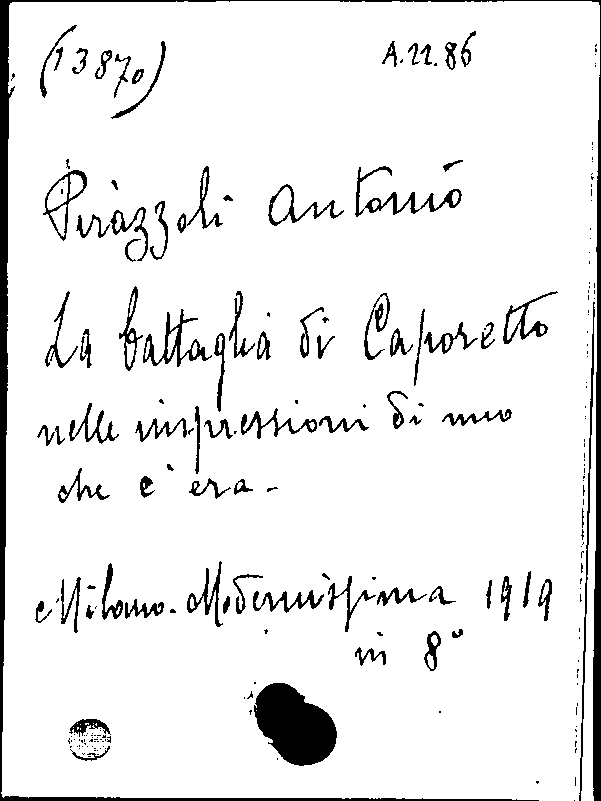 (13870) A.22.86
Pirazzoli Antonio
La battaglia di Caporetto
nelle impressioni di uno
che c'era -
Milano - Modernissima 1919
in 8°